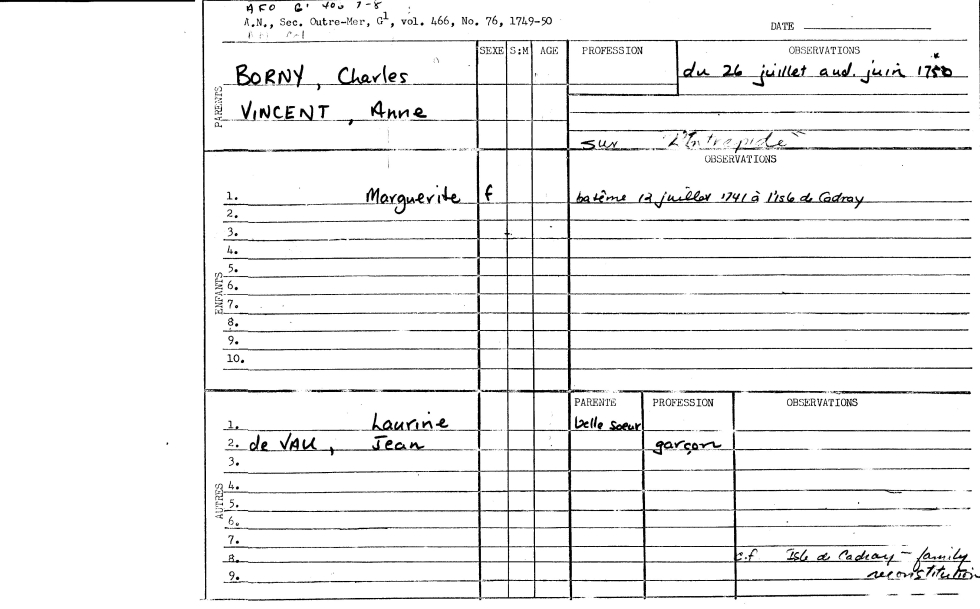 A.N., Sec. Outre-Mer, G1, vol. 466, No. 76, 1749-50
DATE
SEXE S:M AGE PROFESSION OBSERVATIONS
PARENTS
BORNY, Charles
du 26 juillet aud. juin 1750
VINCENT, Anne
sur "L'Intrapide"
OBSERVATIONS
ENFANTS
1. Marguerite f batême 12 juillet 1741 à l'Isle de Cadray
2.
3.
4.
5.
6.
7.
8.
9.
10.
PARENTE PROFESSION OBSERVATIONS
AUTRES
1. Laurine belle soeur
2. de VAU, Jean garçon
3.
4.
5.
6.
7.
8. c.f Isle de Cadray - family
9. reconstitution